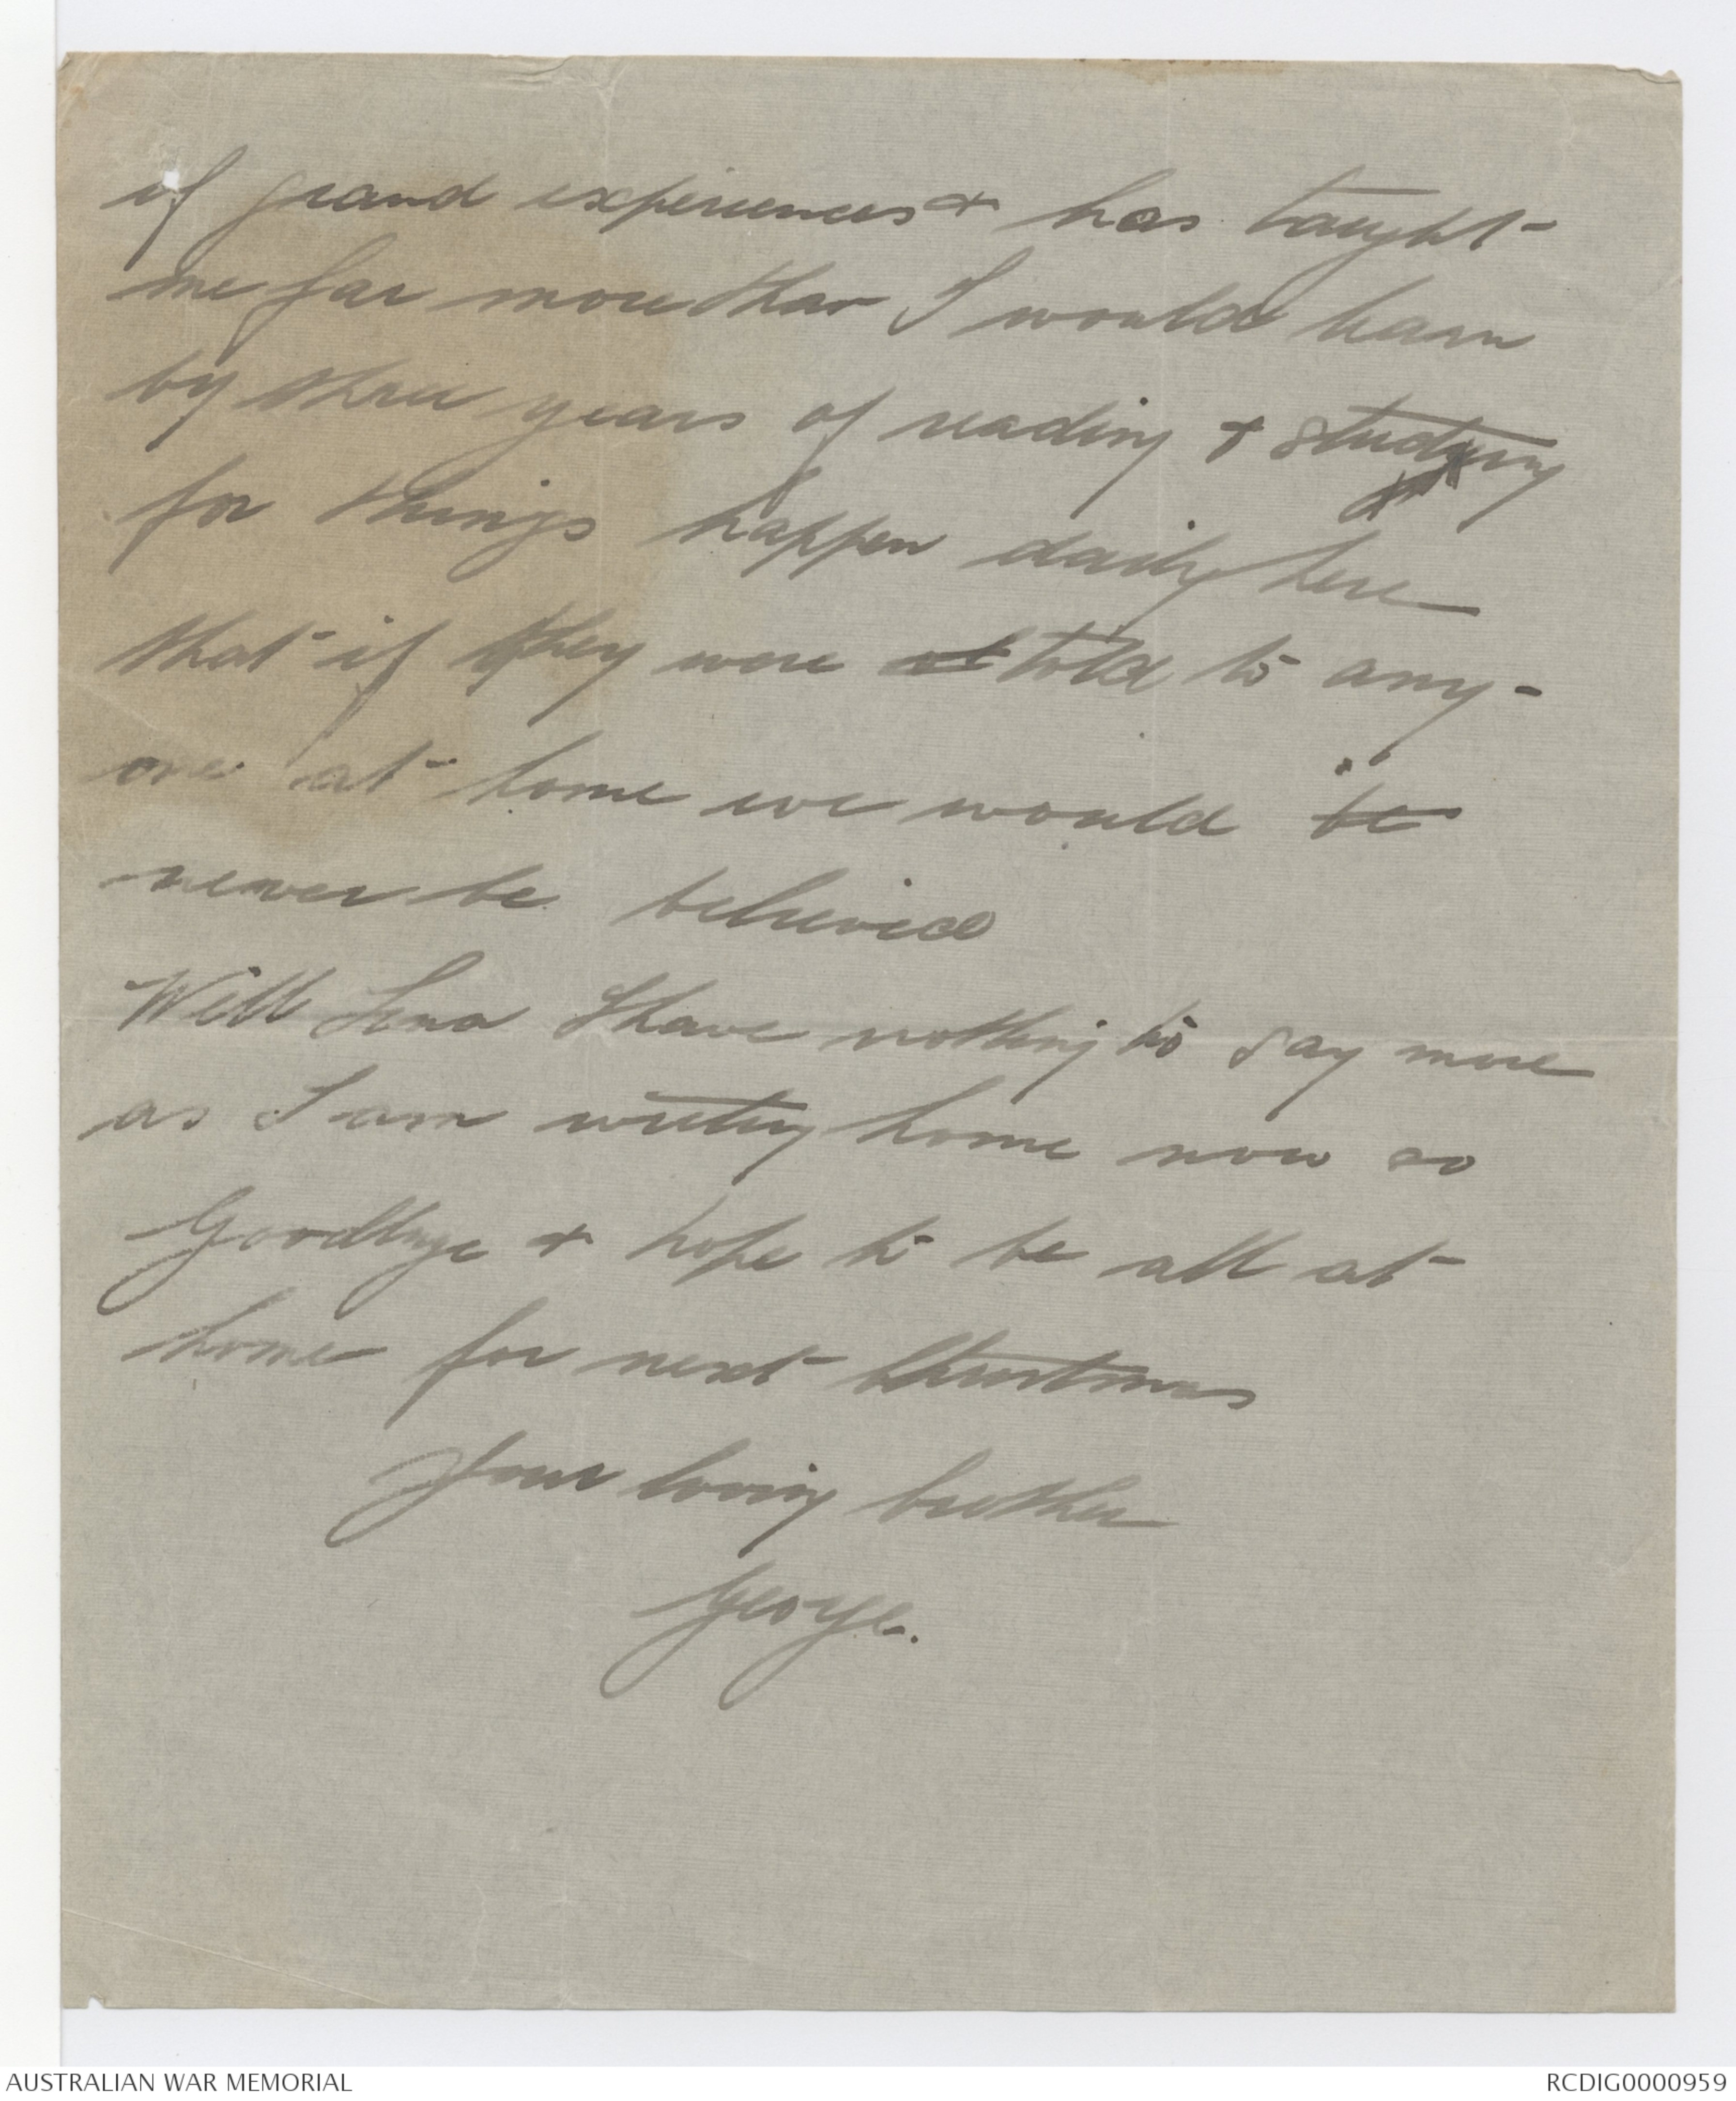 of grand experiences & has taught
me far more than I would learn
by three years of reading & studying
for things happen daily here
that if they were told to any-
one at home we would be
never be believed
Well Lena I have nothing to say more
as I am writing home now so
Goodbye & hope to be all at
home for next Christmas
Your loving brother
George.
AUSTRALIAN WAR MEMORIAL
RCDIG0000959